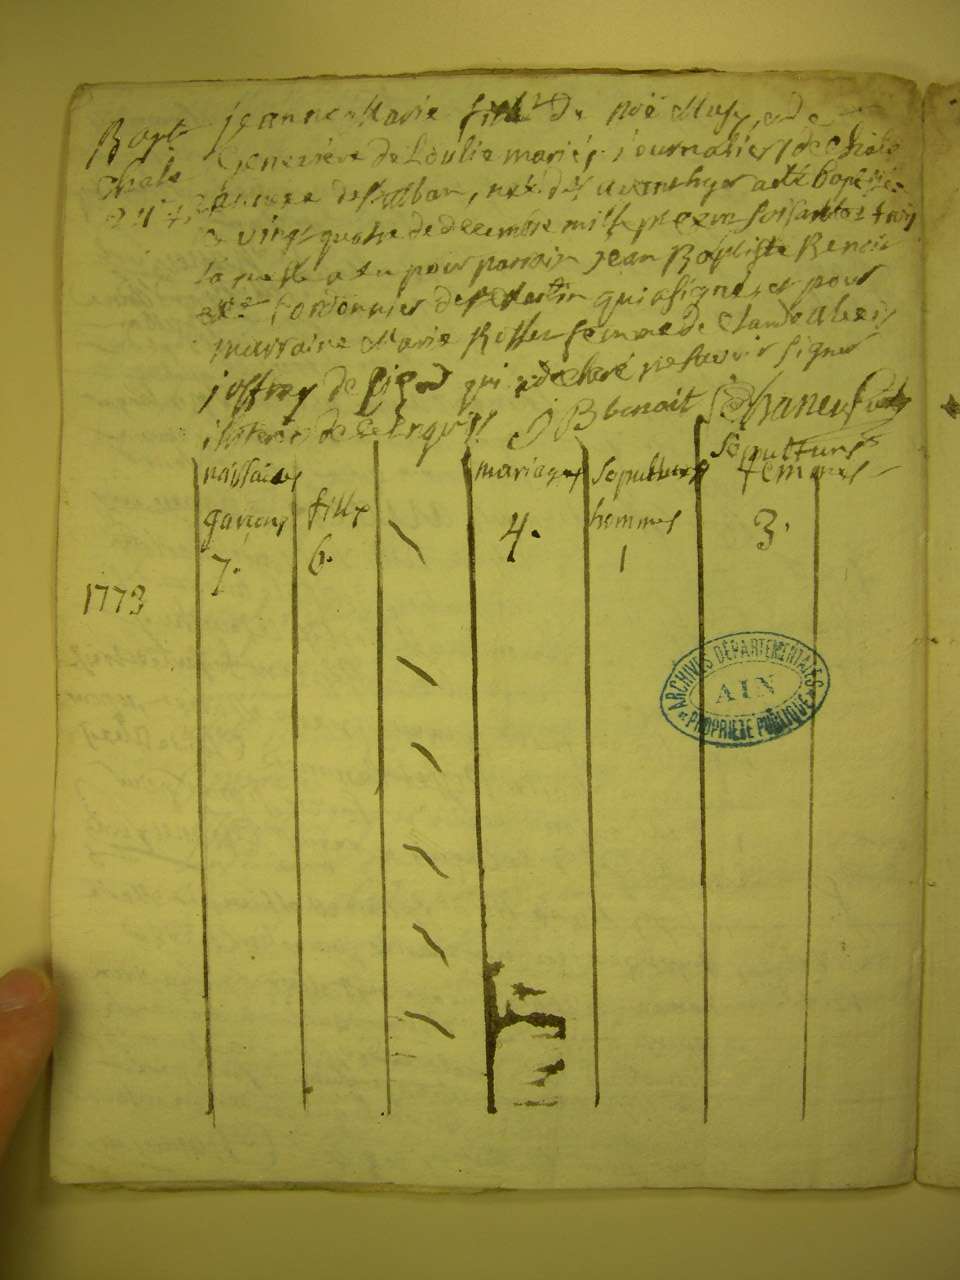 Bapt Jeanne Marie fille de Noë Musy, et de
Genevieve de Loulie mariés journaliers de Chale
Chale annexe de St alban, née dès avant hyer a été baptisée
24 le vingt quatre decembre mil sept cent soixante et treize
la quelle a eu pour parrain Jean Baptiste Benoit
Cordonnier de St Martin qui a signé, et pour
marraine Marie Rosset femme de Claude alexis
joffray de qui a declaré ne savoir signer
de ce enquis J B benoit
naissances mariages sepultures sepultures
garçons filles hommes femmes
1773 7. 6. 4. 1 3.
ARCHIVES DÉPARTEMENTALES
AIN
PROPRIÉTÉ PUBLIQUE